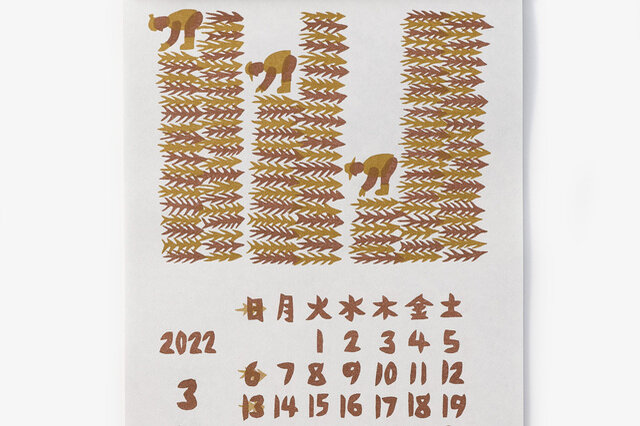 日 月 火 水 木 金 土
2022
1 2 3 4 5
3
6 7 8 9 10 11 12
13 14 15 16 17 18 19